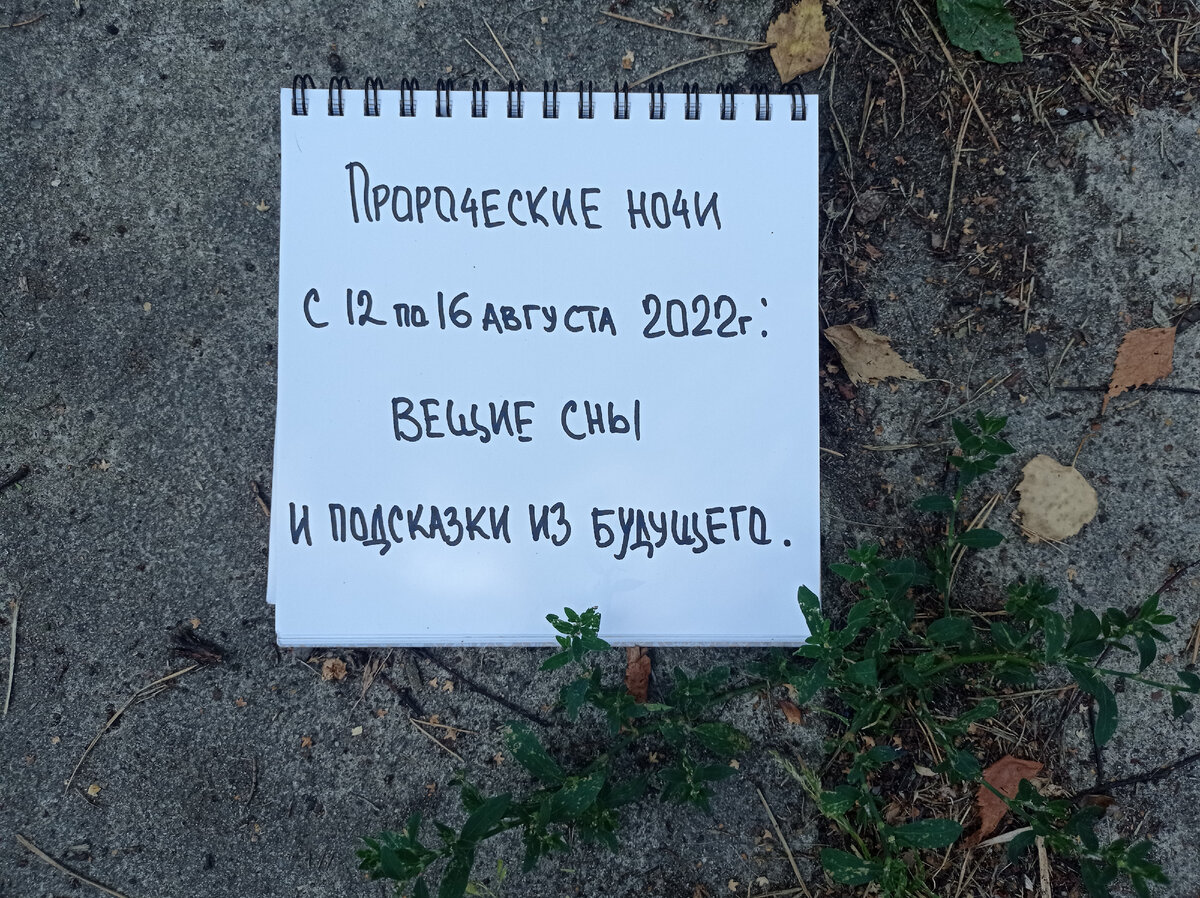 Пророческие ночи
с 12 по 16 августа 2022г:
вещие сны
и подсказки из будущего.